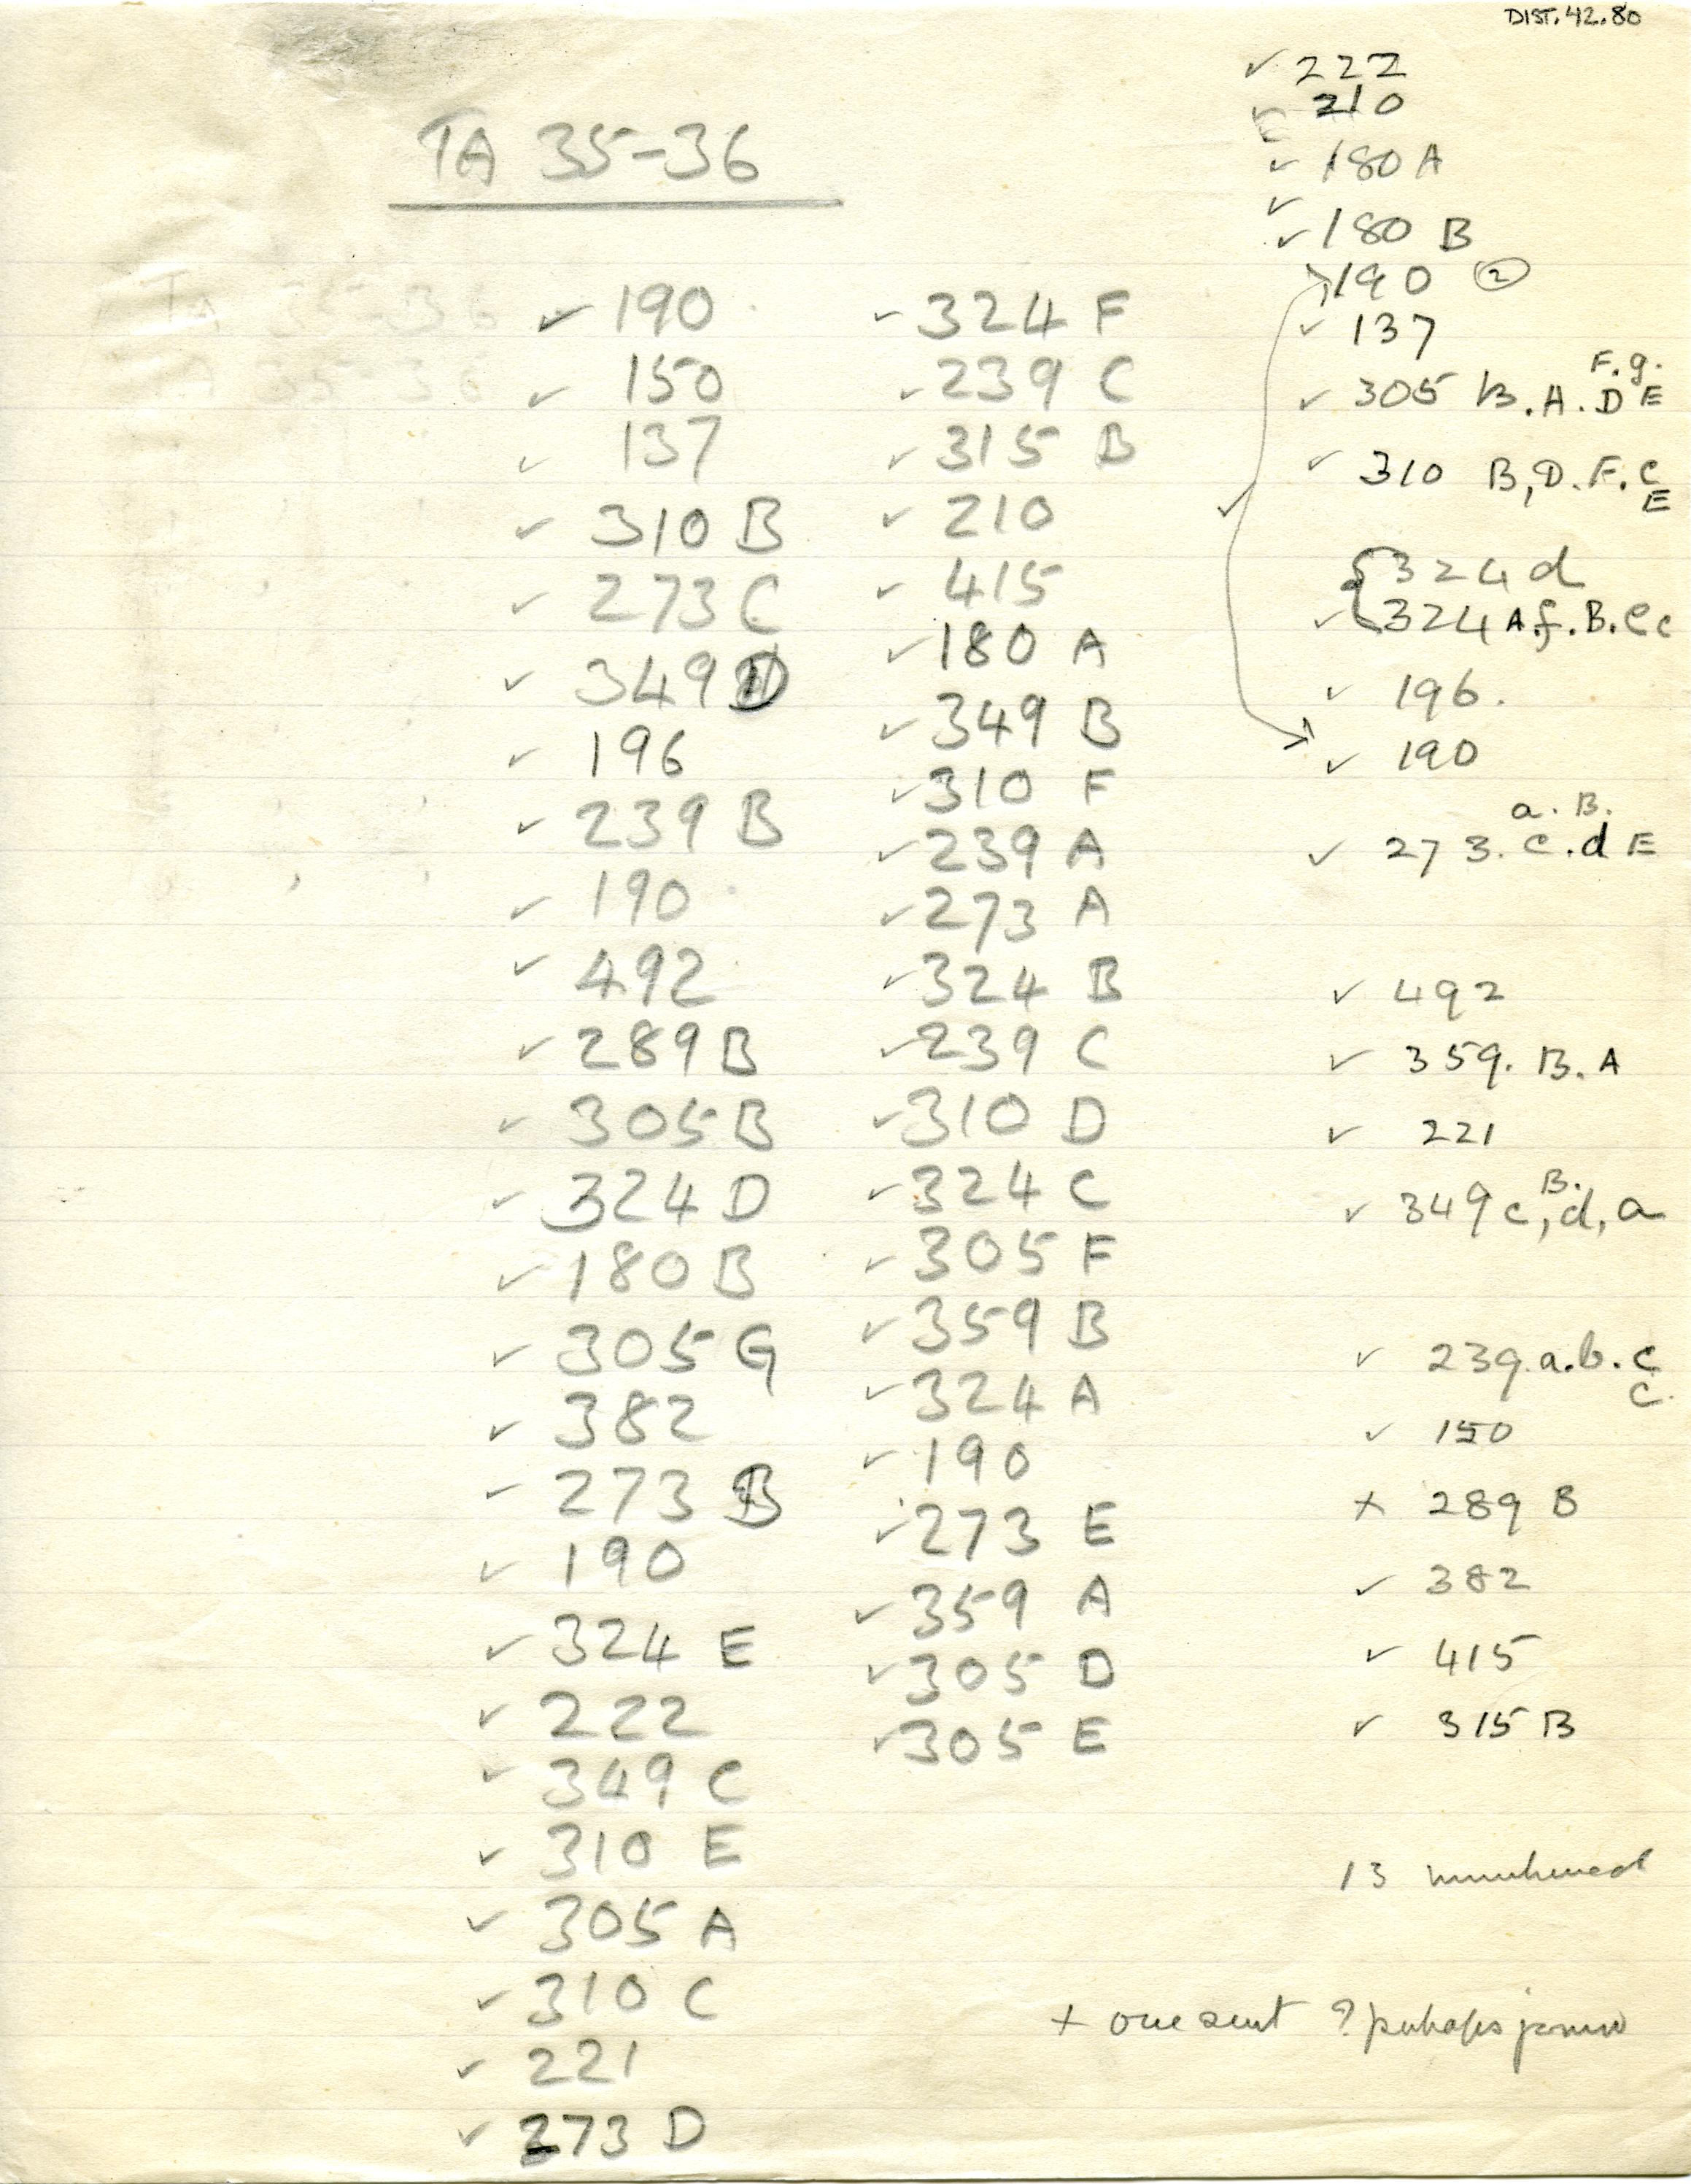 DIST. 42.80
TA 35-36
✓ 190
✓ 150
✓ 137
✓ 310 B
✓ 273 C
✓ 349 D
✓ 196
✓ 239 B
✓ 190
✓ 492
✓ 289 B
✓ 305 B
✓ 324 D
✓ 180 B
✓ 305 G
✓ 382
✓ 273 B
✓ 190
✓ 324 E
✓ 222
✓ 349 C
✓ 310 E
✓ 305 A
✓ 310 C
✓ 221
✓ 273 D
✓ 324 F
✓ 239 C
✓ 315 B
✓ 210
✓ 415
✓ 180 A
✓ 349 B
✓ 310 F
✓ 239 A
✓ 273 A
✓ 324 B
✓ 239 C
✓ 310 D
✓ 324 C
✓ 305 F
✓ 359 B
✓ 324 A
✓ 190
✓ 273 E
✓ 359 A
✓ 305 D
✓ 305 E
✓ 222
✓ 210
✓ 180 A
✓ 180 B
190 ②
✓ 137
F. g.
✓ 305 B. A. D E
✓ 310 B, D. F. C
E
324 d
✓ 324 A. f. B. e c
✓ 196.
✓ 190
a. B.
✓ 273. c. d E
✓ 492
✓ 359. B. A
✓ 221
B.
✓ 349 c, d, a
✓ 239. a. b. c
c.
✓ 150
+ 289 B
✓ 382
✓ 415
✓ 315 B
13
+ one sent ? perhaps